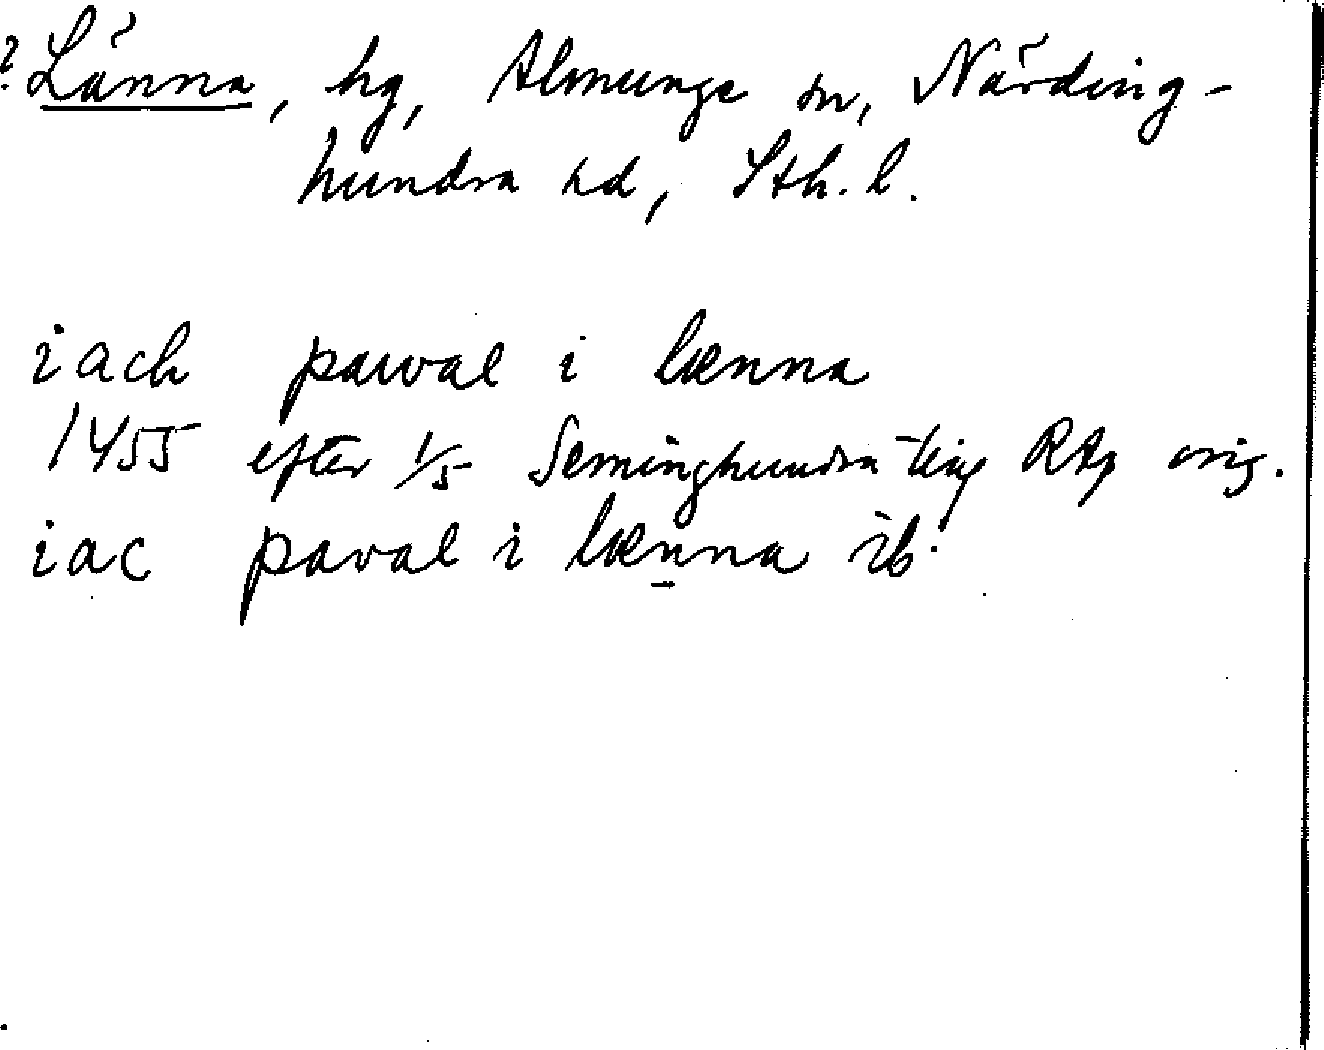 ? Länna, hg, Almunge sn, Närding-
hundra hd, Sth. l.
iach pawal i lænna
1455 efter 1/5 Seminghundra ting RAp orig.
iac paval i lænna ib.